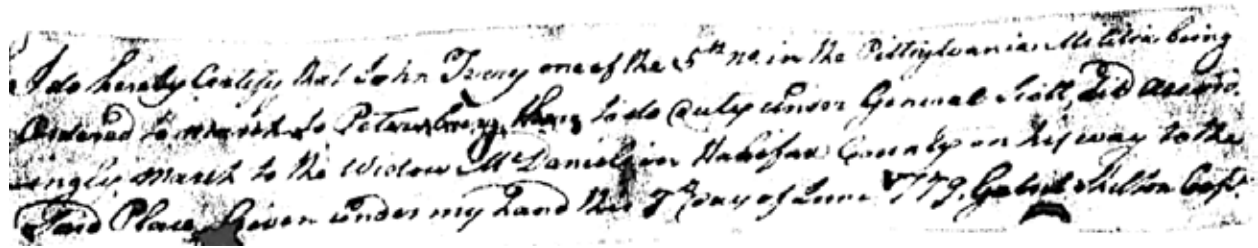 I do hereby Certify that John Terry one of the 5th no. in the Pittsylvania Militia being
Ordered to march to Petersburg, there to do duty under General Scott, did accord-
ingly march to the Widow McDaniels in Halifax County on his way to the
Said Place, Given under my hand this 7th day of June 1779. Gabriel Shelton Capt.